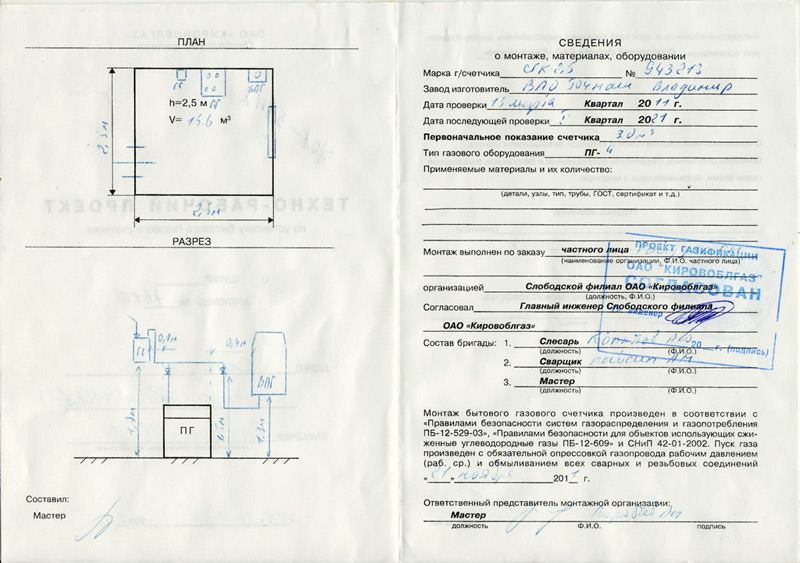 ПЛАН
ГС
ПГ
ВПГ
h=2,5 м
V= 15.6 м³
2,5м
2,5м
РАЗРЕЗ
ГС
0,1м
0,4м
ВПГ
ПГ
1,3м
Составил:
Мастер
СВЕДЕНИЯ
о монтаже, материалах, оборудовании
Марка г/счетчика СГК-2,5 № 943213
Завод изготовитель ВПО Точмаш Владимир
Дата проверки 15 марта Квартал 2011 г.
Дата последующей проверки I Квартал 2021 г.
Первоначальное показание счетчика 3.0м³
Тип газового оборудования ПГ-4
Применяемые материалы и их количество:
(детали, узлы, тип, трубы, ГОСТ, сертификат и т.д.)
Монтаж выполнен по заказу частного лица
(наименование организации, Ф.И.О. частного лица)
организацией Слободской филиал ОАО «Кировоблгаз»
(должность, Ф.И.О.)
Согласовал Главный инженер Слободского филиала
ОАО «Кировоблгаз»
ПРОЕКТ ГАЗИФИКАЦИИ
ОАО "КИРОВОБЛГАЗ"
СОГЛАСОВАН
инженер
20 г. (подпись)
Состав бригады: 1. Слесарь
(должность) (Ф.И.О.)
2. Сварщик
(должность) (Ф.И.О.)
3. Мастер
Монтаж бытового газового счетчика произведен в соответствии с
«Правилами безопасности систем газораспределения и газопотребления
ПБ-12-529-03», «Правилами безопасности для объектов использующих сжи-
женные углеводородные газы ПБ-12-609» и СНиП 42-01-2002. Пуск газа
произведен с обязательной опрессовкой газопровода рабочим давлением
(раб. ср.) и обмыливанием всех сварных и резьбовых соединений
«21» ноября 2011 г.
Ответственный представитель монтажной организации:
Мастер
должность Ф.И.О. подпись